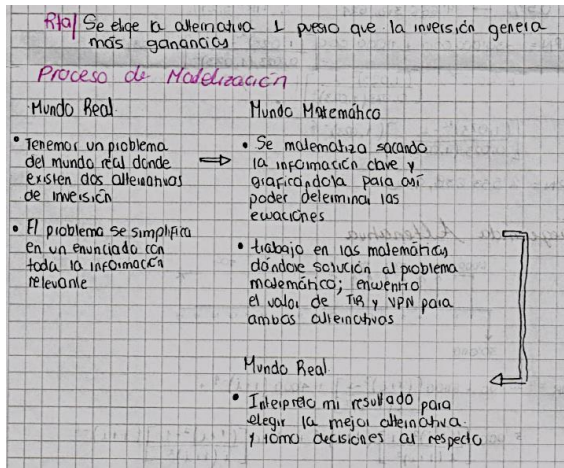 Rta/ Se elige la alternativa 1 puesto que la inversión genera
más ganancias
Proceso de Modelización
Mundo Real
• Tenemos un problema
del mundo real donde
existen dos alternativas
de inversión
• El problema se simplifica
en un enunciado con
toda la información
relevante
Mundo Matemático
• Se matematiza sacando
la información clave y
graficándola para así
poder determinar las
ecuaciones
• trabajo en las matemáticas
dándole solución al problema
matemático; encuentro
el valor de TIR y VPN para
ambas alternativas
Mundo Real
• Interpreto mi resultado para
elegir la mejor alternativa.
y tomo decisiones al respecto